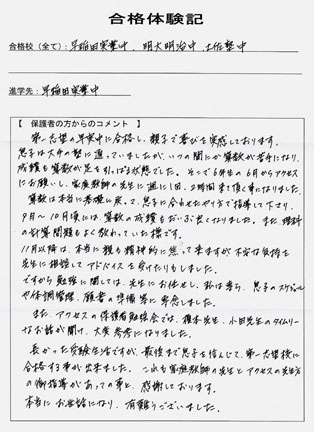 合格体験記
合格校（全て）: 早稲田実業中、明大明治中、土佐塾中
進学先: 早稲田実業中
【 保護者の方からのコメント 】
第一志望の早実中に合格し、親子で喜びを実感しております。
息子は大手の塾に通っていましたが、いつの間にか算数が苦手になり、
成績も算数が足を引っぱる状態でした。そこで6年生の6月からアクセス
にお願いし、家庭教師の先生に週に1回、2時間来て頂く事になりました。
算数は本当に基礎に戻って、息子に合わせたやり方で指導して下さり、
9月〜10月頃には、算数の成績もだいぶ良くなりました。また理科
の計算問題もよく教わっていた様です。
11月以降は、本当に親も精神的に焦って来ますが不安な気持を
先生に相談してアドバイスを受けたりもしました。
ですから勉強に関しては、先生にお任せし、私は専ら、息子のスケジュール
や体調管理、願書の準備等に専念しました。
また、アクセスの保護者勉強会では、榎本先生、小田先生のタイムリー
なお話が聞け、大変参考になりました。
長かった受験生活ですが、最後まで息子を信じて、第一志望校に
合格する事が出来ました。これも家庭教師の先生とアクセスの先生方
の御指導があっての事と、感謝しております。
本当にお世話になり、有難うございました。